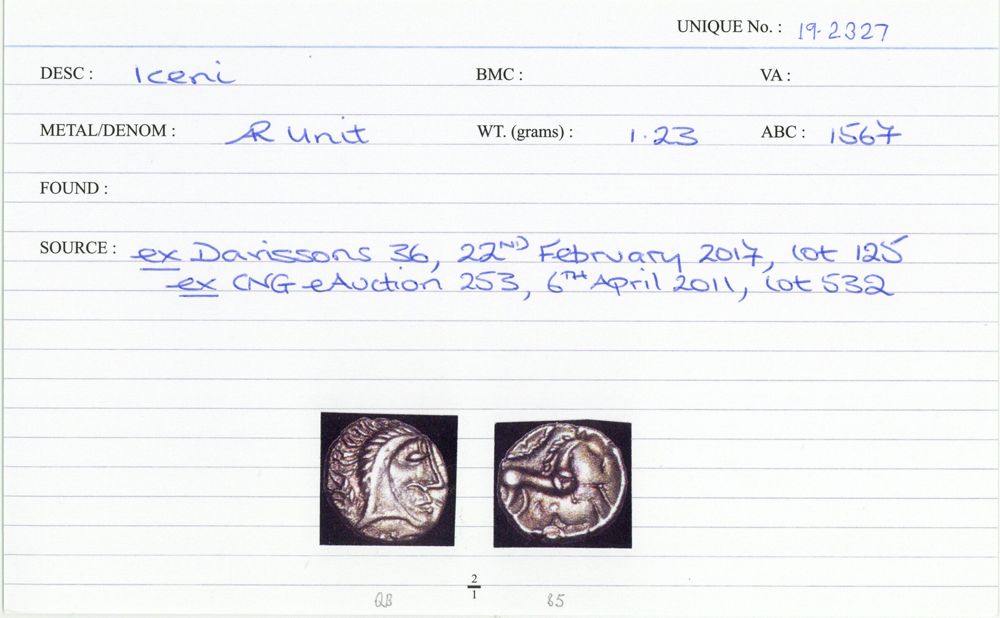 UNIQUE No. : 19.2327
DESC : Iceni BMC : VA :
METAL/DENOM : AR Unit WT. (grams) : 1.23 ABC : 1567
FOUND :
SOURCE : ex Davissons 36, 22ND February 2017, lot 125
ex CNG eAuction 253, 6TH April 2011, lot 532
2
1
QB 85